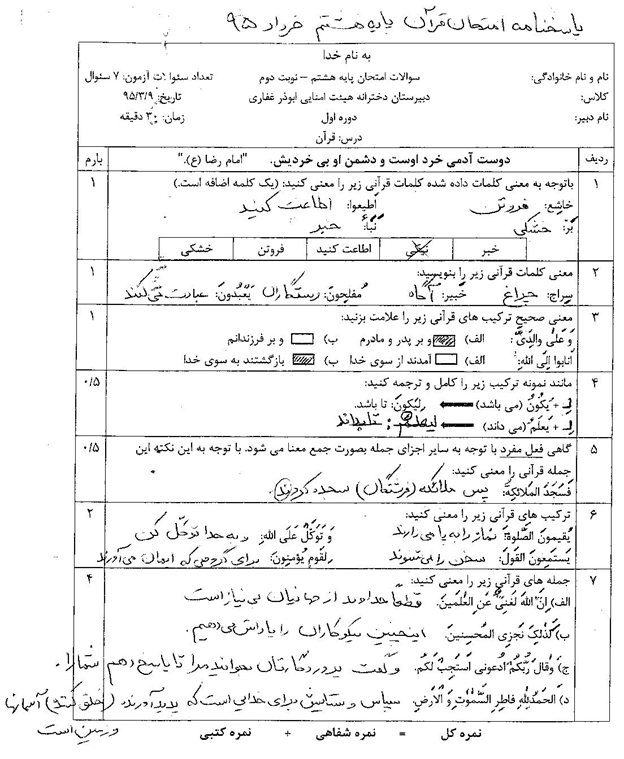 پاسخنامه امتحان قرآن پایه هشتم خرداد ۹۵
به نام خدا
نام و نام خانوادگی: سوالات امتحان پایه هشتم – نوبت دوم تعداد سئوالات آزمون: ۷ سئوال
کلاس: دبیرستان دخترانه هیئت امنایی ابوذر غفاری تاریخ: ۹۵/۳/۹
نام دبیر: دوره اول زمان: ۳۰ دقیقه
درس: قرآن
ردیف دوست آدمی خرد اوست و دشمن او بی خردیش. "امام رضا (ع)." بارم
۱ باتوجه به معنی کلمات داده شده کلمات قرآنی زیر را معنی کنید: (یک کلمه اضافه است.) ۱
خاشِع: فروتن اَطیعوا: اطاعت کنید
بَرّ: خشکی نَبَأ: خبر
خبر نیکی اطاعت کنید فروتن خشکی
۲ معنی کلمات قرآنی زیر را بنویسید: ۱
سِراج: چراغ خَبیر: آگاه مُفلِحون: رستگاران یَعبُدونَ: عبادت می‌کنند
۳ معنی صحیح ترکیب های قرآنی زیر را علامت بزنید: ۱
وَ عَلی والِدَیَّ: الف) و بر پدر و مادرم ب) و بر فرزندانم
اَنابوا اِلَی اللهِ: الف) آمدند از سوی خدا ب) بازگشتند به سوی خدا
۴ مانند نمونه ترکیب زیر را کامل و ترجمه کنید: ۰/۵
لِـ + یَکُونُ (می باشد) لِیَکُونَ: تا باشد.
لِـ + یَعلَمُ (می داند) لِیَعلَمَ: تا بداند
۵ گاهی فعل مفرد با توجه به سایر اجزای جمله بصورت جمع معنا می شود. با توجه به این نکته این ۰/۵
جمله قرآنی را معنی کنید:
فَسَجَدَ المَلائِکَةُ: پس ملائکه (فرشتگان) سجده کردند.
۶ ترکیب های قرآنی زیر را معنی کنید: ۲
یُقیمونَ الصَّلوةَ: نماز را به پا می دارند وَ تَوَکَّل عَلَی اللهِ: و به خدا توکل کن
یَستَمِعونَ القَولَ: سخن را می شنوند لِقَومٍ یُؤمِنونَ: برای گروهی که ایمان می آورند
۷ جمله های قرآنی زیر را معنی کنید: ۴
الف) اِنَّ اللهَ لَغَنِیٌّ عَنِ العلَمینَ. قطعاً خداوند از جهانیان بی نیاز است
ب) کَذلِکَ نَجزِی المُحسِنینَ. اینچنین نیکوکاران را پاداش می دهیم.
ج) وَ قالَ رَبُّکُمُ ادعونی اَستَجِب لَکُم. و گفت پروردگارتان بخوانید مرا تا پاسخ دهم شما را.
د) اَلحَمدُلِلّهِ فاطِرِ السَّموتِ وَ الاَرضِ. سپاس و ستایش برای خدایی است که پدید آورنده (خلق کننده) آسمانها
و زمین است
نمره کل = نمره شفاهی ÷ نمره کتبی